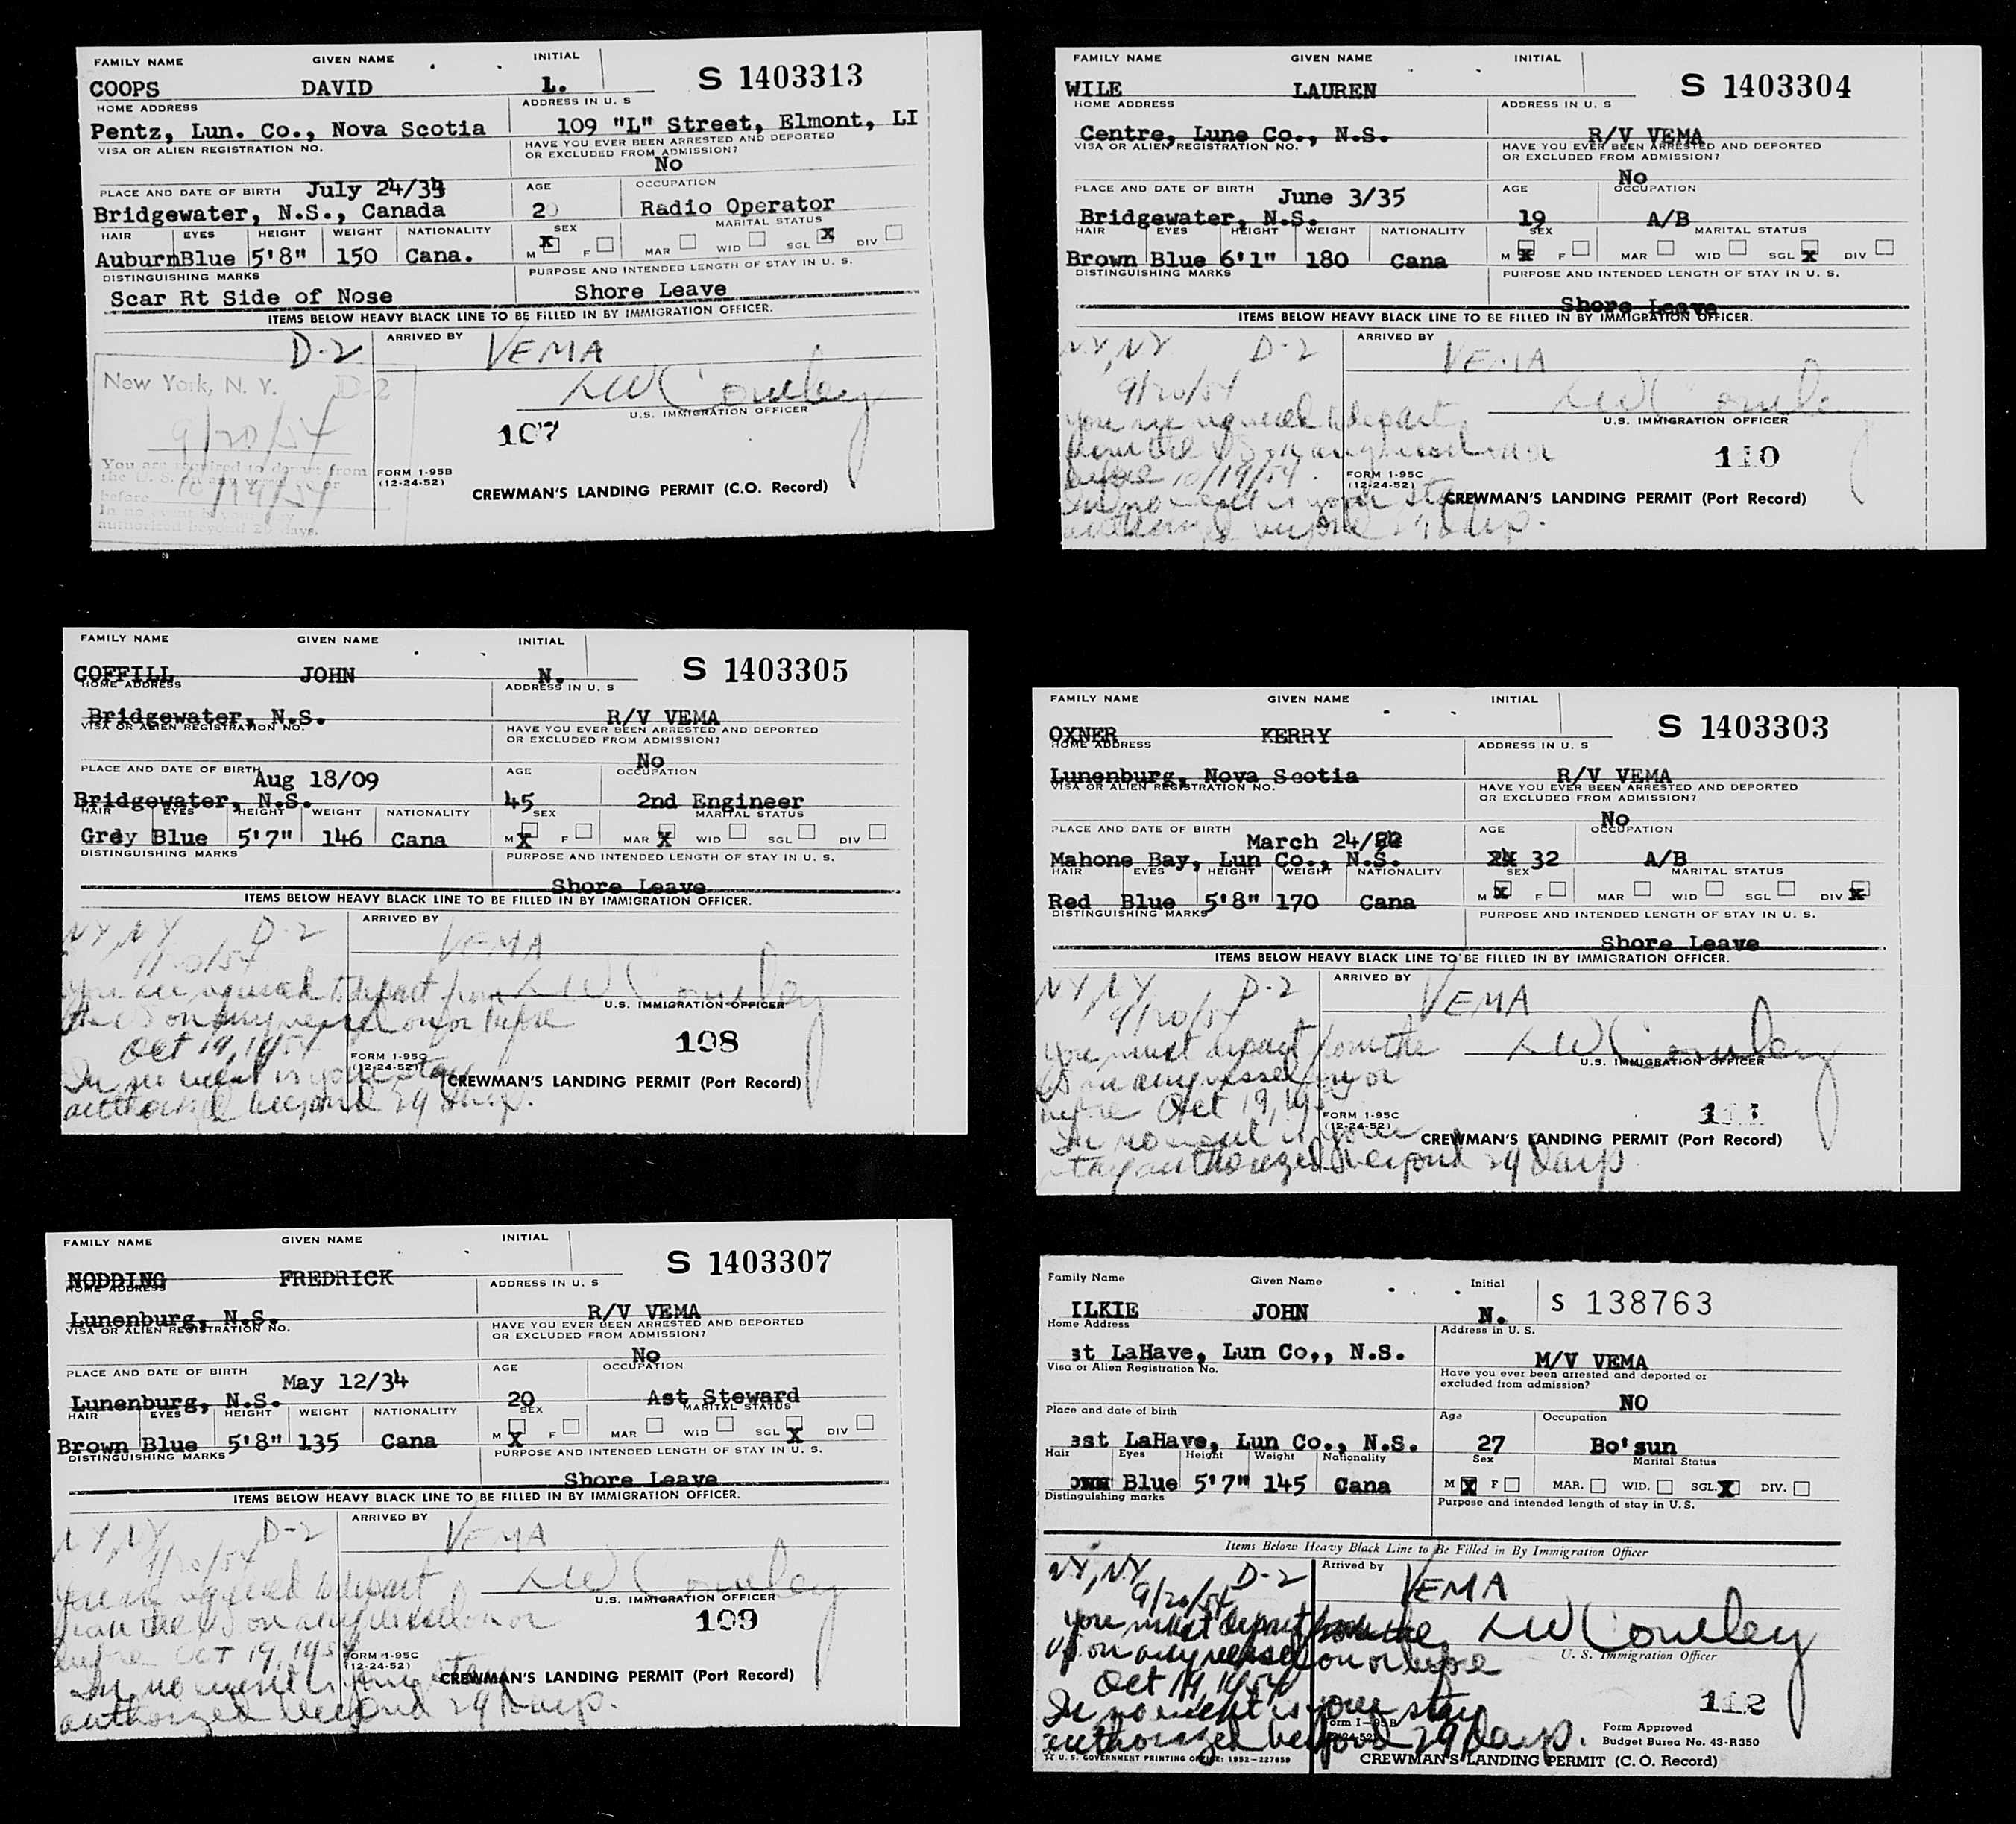 FAMILY NAME GIVEN NAME INITIAL
COOPS DAVID L. S 1403313
HOME ADDRESS ADDRESS IN U. S
Pentz, Lun. Co., Nova Scotia 109 "L" Street, Elmont, LI
VISA OR ALIEN REGISTRATION NO. HAVE YOU EVER BEEN ARRESTED AND DEPORTED
OR EXCLUDED FROM ADMISSION?
No
PLACE AND DATE OF BIRTH July 24/34 AGE OCCUPATION
Bridgewater, N.S., Canada 20 Radio Operator
HAIR EYES HEIGHT WEIGHT NATIONALITY SEX MARITAL STATUS
AuburnBlue 5'8" 150 Cana. M X F MAR WID SGL X DIV
DISTINGUISHING MARKS PURPOSE AND INTENDED LENGTH OF STAY IN U. S.
Scar Rt Side of Nose Shore Leave
ITEMS BELOW HEAVY BLACK LINE TO BE FILLED IN BY IMMIGRATION OFFICER.
D-2 ARRIVED BY VEMA
New York, N. Y. D-2
9/20/54 U.S. IMMIGRATION OFFICER
107
You are required to depart from
the U. S. on any vessel on or
before 10/19/54
In no
authorized beyond 29 days.
FORM 1-95B
(12-24-52)
CREWMAN'S LANDING PERMIT (C.O. Record)
FAMILY NAME GIVEN NAME INITIAL
WILE LAUREN S 1403304
HOME ADDRESS ADDRESS IN U. S
Centre, Lune Co., N.S. R/V VEMA
VISA OR ALIEN REGISTRATION NO. HAVE YOU EVER BEEN ARRESTED AND DEPORTED
OR EXCLUDED FROM ADMISSION?
No
PLACE AND DATE OF BIRTH June 3/35 AGE OCCUPATION
Bridgewater, N.S. 19 A/B
HAIR EYES HEIGHT WEIGHT NATIONALITY SEX MARITAL STATUS
Brown Blue 6'1" 180 Cana M X F MAR WID SGL X DIV
DISTINGUISHING MARKS PURPOSE AND INTENDED LENGTH OF STAY IN U. S.
Shore Leave
ITEMS BELOW HEAVY BLACK LINE TO BE FILLED IN BY IMMIGRATION OFFICER.
NY, NY D-2 ARRIVED BY VEMA
9/20/54
you are required to depart U.S. IMMIGRATION OFFICER
from the US on any vessel on or
before 10/19/54. 110
In no event is your stay
authorized beyond 29 days.
FORM 1-95C
(12-24-52)
CREWMAN'S LANDING PERMIT (Port Record)
FAMILY NAME GIVEN NAME INITIAL
COFFILL JOHN N. S 1403305
HOME ADDRESS ADDRESS IN U. S
Bridgewater, N.S. R/V VEMA
VISA OR ALIEN REGISTRATION NO. HAVE YOU EVER BEEN ARRESTED AND DEPORTED
OR EXCLUDED FROM ADMISSION?
No
PLACE AND DATE OF BIRTH Aug 18/09 AGE OCCUPATION
Bridgewater, N.S. 45 2nd Engineer
HAIR EYES HEIGHT WEIGHT NATIONALITY SEX MARITAL STATUS
Grey Blue 5'7" 146 Cana M X F MAR X WID SGL DIV
DISTINGUISHING MARKS PURPOSE AND INTENDED LENGTH OF STAY IN U. S.
Shore Leave
ITEMS BELOW HEAVY BLACK LINE TO BE FILLED IN BY IMMIGRATION OFFICER.
NY, NY D-2 ARRIVED BY VEMA
9/20/54
you are required to depart from U.S. IMMIGRATION OFFICER
the US on any vessel on or before
Oct 19, 1954 108
In no event is your stay
authorized beyond 29 days.
FORM 1-95C
(12-24-52)
CREWMAN'S LANDING PERMIT (Port Record)
FAMILY NAME GIVEN NAME INITIAL
OXNER KERRY S 1403303
HOME ADDRESS ADDRESS IN U. S
Lunenburg, Nova Scotia R/V VEMA
VISA OR ALIEN REGISTRATION NO. HAVE YOU EVER BEEN ARRESTED AND DEPORTED
OR EXCLUDED FROM ADMISSION?
No
PLACE AND DATE OF BIRTH March 24/ AGE OCCUPATION
Mahone Bay, Lun Co., N.S. 32 A/B
HAIR EYES HEIGHT WEIGHT NATIONALITY SEX MARITAL STATUS
Red Blue 5'8" 170 Cana M X F MAR WID SGL DIV X
DISTINGUISHING MARKS PURPOSE AND INTENDED LENGTH OF STAY IN U. S.
Shore Leave
ITEMS BELOW HEAVY BLACK LINE TO BE FILLED IN BY IMMIGRATION OFFICER.
NY, NY D-2 ARRIVED BY VEMA
9/20/54
you must depart from the U.S. IMMIGRATION OFFICER
US on any vessel on or
before Oct 19, 195
In no event is your
stay authorized beyond 29 days
FORM 1-95C
(12-24-52)
CREWMAN'S LANDING PERMIT (Port Record)
FAMILY NAME GIVEN NAME INITIAL
NODDING FREDRICK S 1403307
HOME ADDRESS ADDRESS IN U. S
Lunenburg, N.S. R/V VEMA
VISA OR ALIEN REGISTRATION NO. HAVE YOU EVER BEEN ARRESTED AND DEPORTED
OR EXCLUDED FROM ADMISSION?
No
PLACE AND DATE OF BIRTH May 12/34 AGE OCCUPATION
Lunenburg, N.S. 20 Ast Steward
HAIR EYES HEIGHT WEIGHT NATIONALITY SEX MARITAL STATUS
Brown Blue 5'8" 135 Cana M X F MAR WID SGL X DIV
DISTINGUISHING MARKS PURPOSE AND INTENDED LENGTH OF STAY IN U. S.
Shore Leave
ITEMS BELOW HEAVY BLACK LINE TO BE FILLED IN BY IMMIGRATION OFFICER.
NY, NY D-2 ARRIVED BY VEMA
9/20/54
you are required to depart U.S. IMMIGRATION OFFICER
from the US on any vessel on or 109
before Oct 19, 195
In no event is your stay
authorized beyond 29 days.
FORM 1-95C
(12-24-52)
CREWMAN'S LANDING PERMIT (Port Record)
Family Name Given Name Initial
ILKIE JOHN N. S 138763
Home Address Address in U. S.
st LaHave, Lun Co,, N.S. M/V VEMA
Visa or Alien Registration No. Have you ever been arrested and deported or
excluded from admission?
NO
Place and date of birth Age Occupation
est LaHave, Lun Co., N.S. 27 Bo'sun
Hair Eyes Height Weight Nationality Sex Marital Status
Blue 5'7" 145 Cana M X F MAR. WID. SGL. X DIV.
Distinguishing marks Purpose and intended length of stay in U. S.
Items Below Heavy Black Line to Be Filled in By Immigration Officer
NY, NY D-2 Arrived by VEMA
9/20/54
you must depart from the
US on any vessel on or before U. S. Immigration Officer
Oct 19, 1954 112
In no event is your stay
authorized beyond 29 days.
Form I-95B
Form Approved
Budget Burea No. 43-R350
☆ U. S. GOVERNMENT PRINTING OFFICE: 1952-227859
CREWMAN'S LANDING PERMIT (C. O. Record)